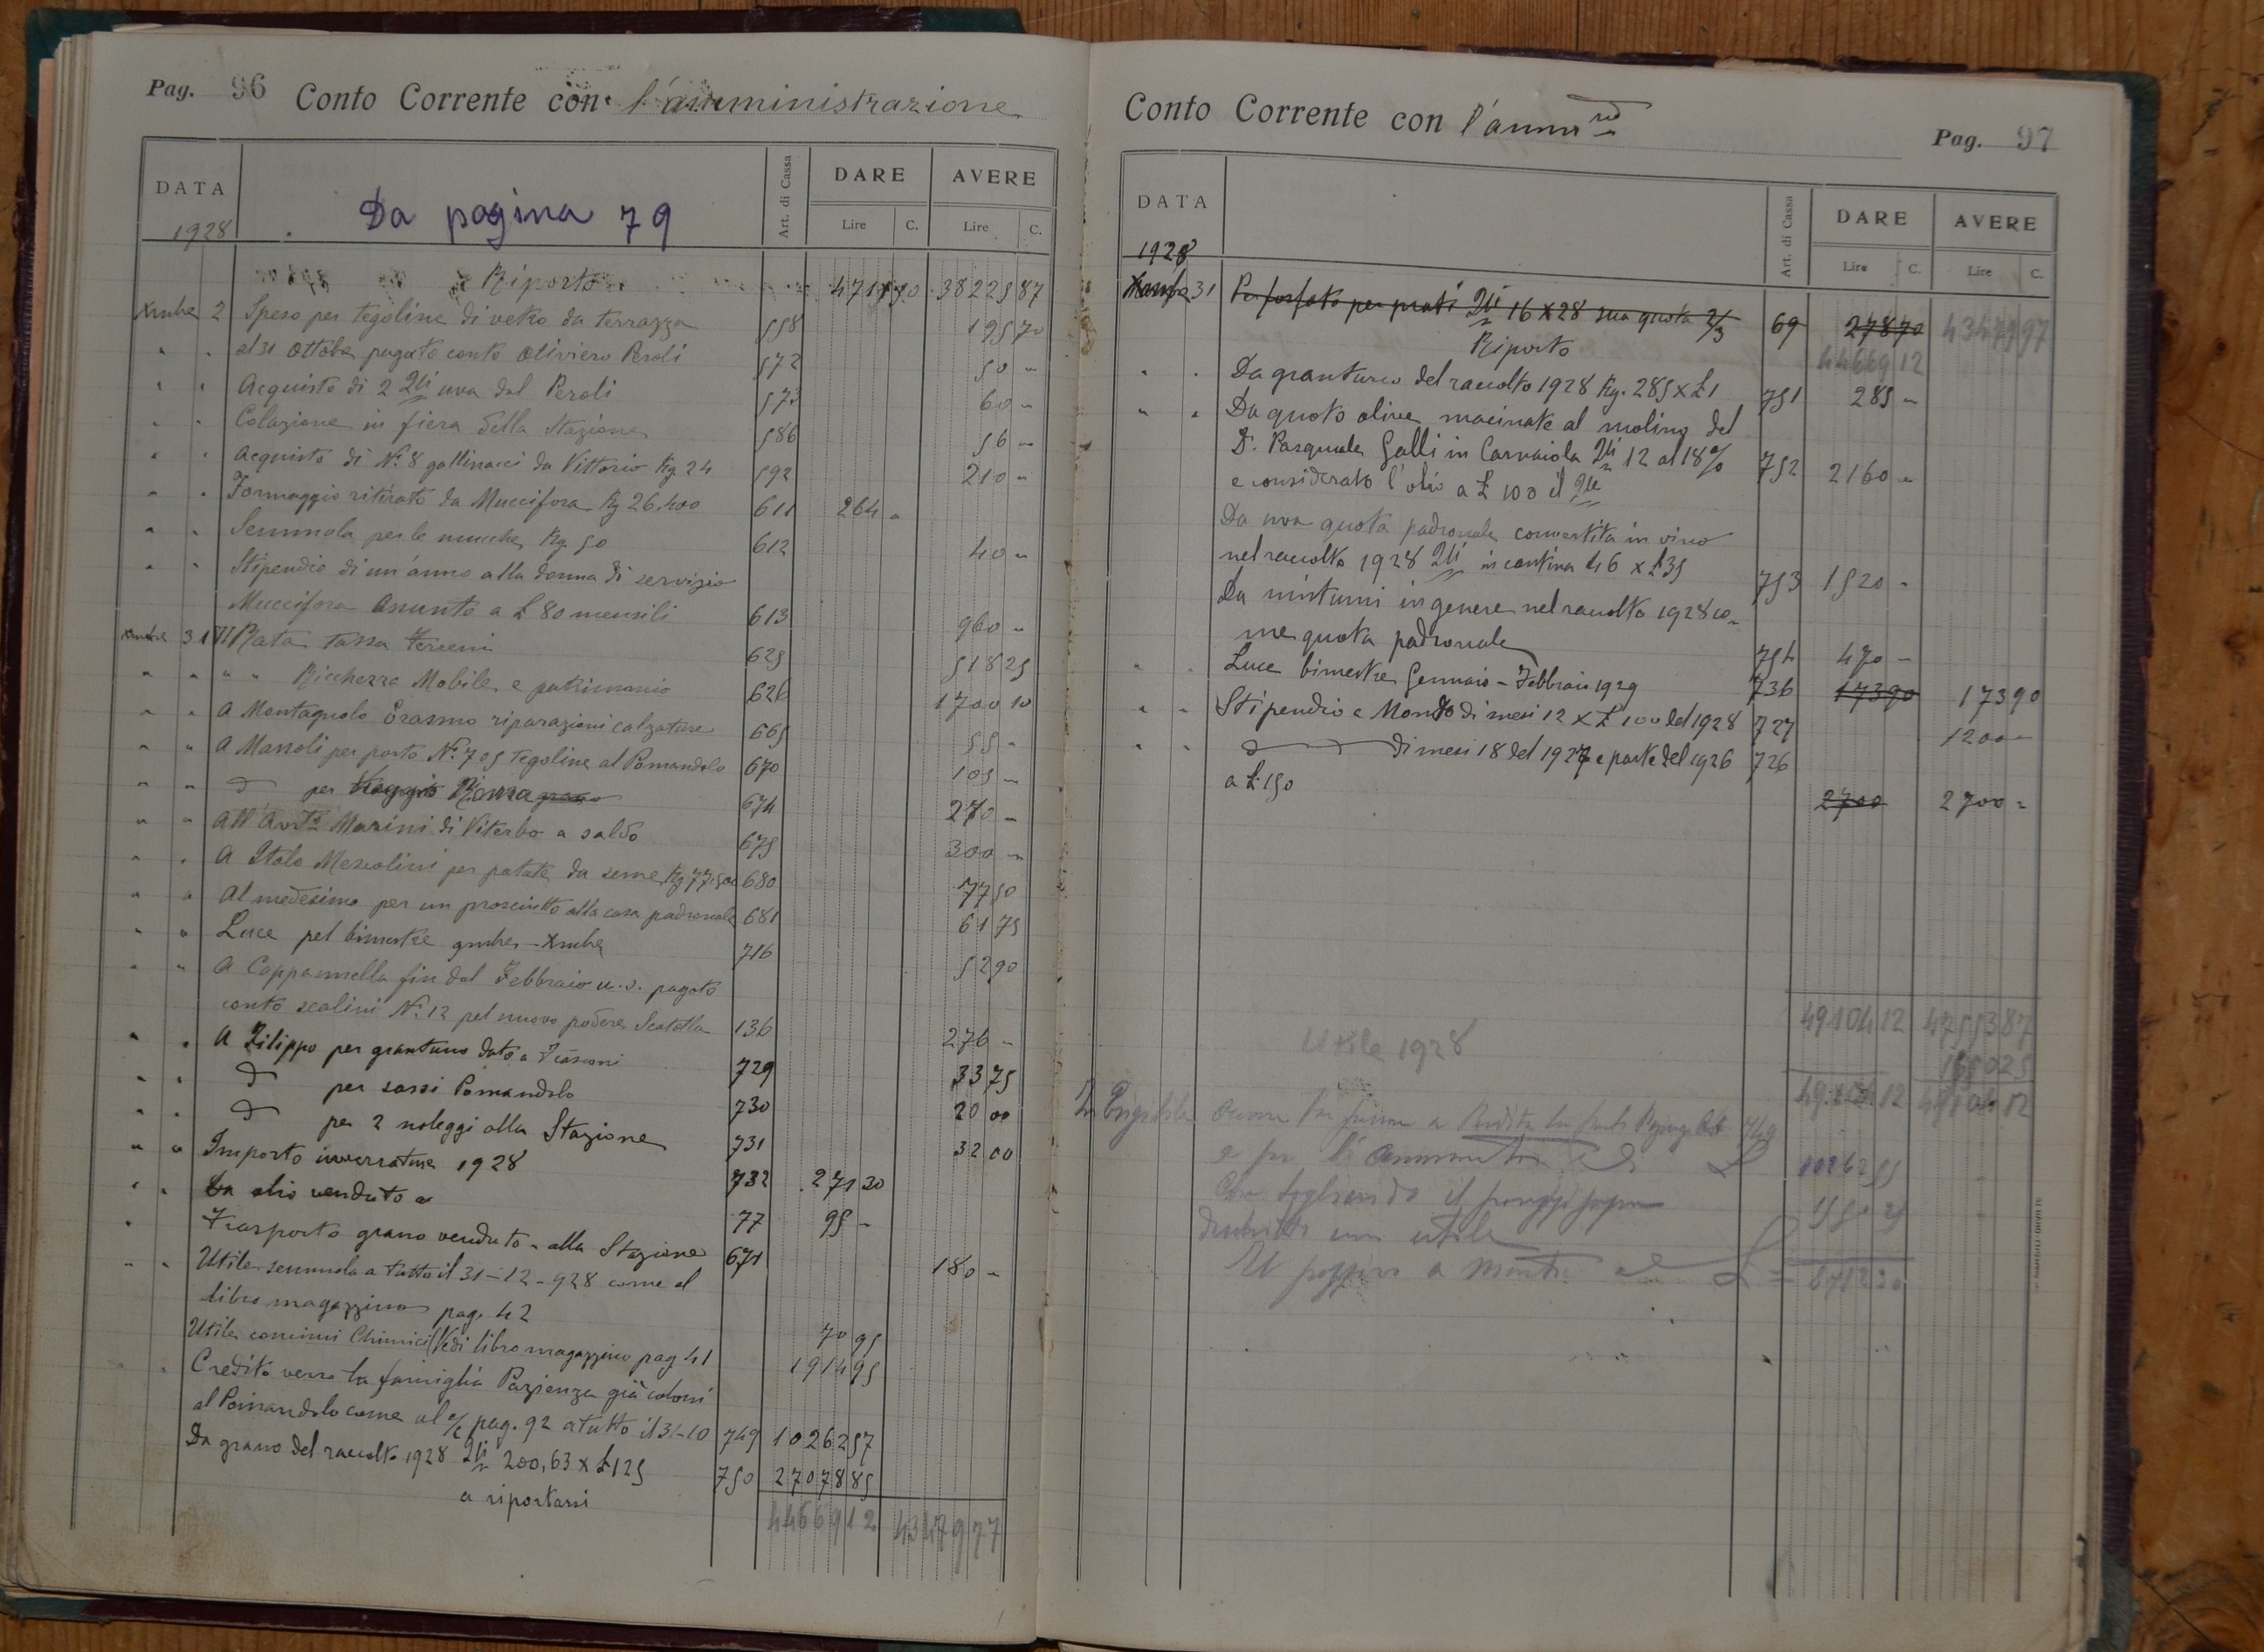 Pag. 96 Conto Corrente con l'amministrazione
DATA Da pagina 79 Art. di Cassa DARE AVERE
1928 Lire C. Lire C.
Riporto 38225 87
Xmbre 2 Spesa per tegoline di vetro da terrazza 558 195 70
" " al 31 Ottobre pagato conto Oliviero Peroli 572 50 "
" " Acquisto di 2 Qli uva dal Peroli 573 60 "
" " Colazione in fiera della Stazione 586 56 "
" " Acquisto di N.° 8 gallinacci da Vittorio Kg 24 592 210 "
" " Formaggio ritirato da Muccifora Kg 26.400 611 264 "
" " Semmola per le mucche Kg. 50 612 40 "
" " Stipendio di un'anno alla donna di servizio
Muccifora Assunta a £ 80 mensili 613 960 "
Xmbre 31 VI Rata Tassa Terreni 625 518 25
" " " " Ricchezza Mobile e patrimonio 626 1700 10
" " A Montagnolo Erasmo riparazioni calzature 665 55 "
" " A Massoli per porto N.° 705 Tegoline al Pomandolo 670 105 "
" " D per 674 270 "
" " All' Marini di Viterbo a saldo 675 300 "
" " A Italo Mescolini per patate da seme Kg 77.500 680 77 50
" " Al medesimo per un prosciutto alla casa padronale 681 61 75
" " Luce pel bimestre 9mbre - Xmbre 716 52 90
" " A Cappannella fin dal Febbraio u.s. pagato
conto scalini N.° 12 pel nuovo podere Scatolla 136 276 "
" " A Filippo per granturco dato a 729 33 75
" " D per sassi Pomandolo 730 20 00
" " D per 2 noleggi alla Stazione 731 32 00
" " Importo 1928 732 271 30
" " Da olio venduto a 77 95 -
" Trasporto grano venduto - alla Stazione 671 180 "
" " Utile semmola a tutto il 31-12-928 come al
libro magazzino pag. 42 70 95
Utile concimi Chimici (Vedi libro magazzino pag 41 1914 95
" Credito verso la famiglia Pazienza già coloni
al Pomandolo come al c/c pag. 92 a tutto il 31-10 749 10262 57
Da grano del raccolto 1928 Qli 200,63 x £ 125 750 27078 85
a riportarsi 44669 12 43479 77
Conto Corrente con l'amm Pag. 97
DATA Art. di Cassa DARE AVERE
1928 Lire C. Lire C.
31 Perfosfato per prati Qli 16 x 28 sua quota 2/3 69 278 70 43479 97
Riporto 44669 12
" " Da granturco del raccolto 1928 Kg. 285 x £ 1 751 285 "
" " Da quota olive macinate al molino del
D.r Pasquale Galli in Carvaiola Qli 12 al 18% 752 2160 "
e considerato l'olio a £ 100 il Qle
Da uva quota padronale convertita in vino
nel raccolto 1928 Qli in cantina 46 x £ 35 753 1520 "
Da mintumi in genere nel raccolto 1928 co-
me quota padronale 754 470 -
" " Luce bimestre Gennaio - Febbraio 1929 736 173 90 173 90
" " Stipendio a Mondo di mesi 12 x £ 100 del 1928 727 1200 -
" " D di mesi 18 del 1927 e parte del 1926 726
a £ 150 2700 2700 =
49104 12 47553 87
Utile 1928
49104 12 49104 12
10262 55
1550 25